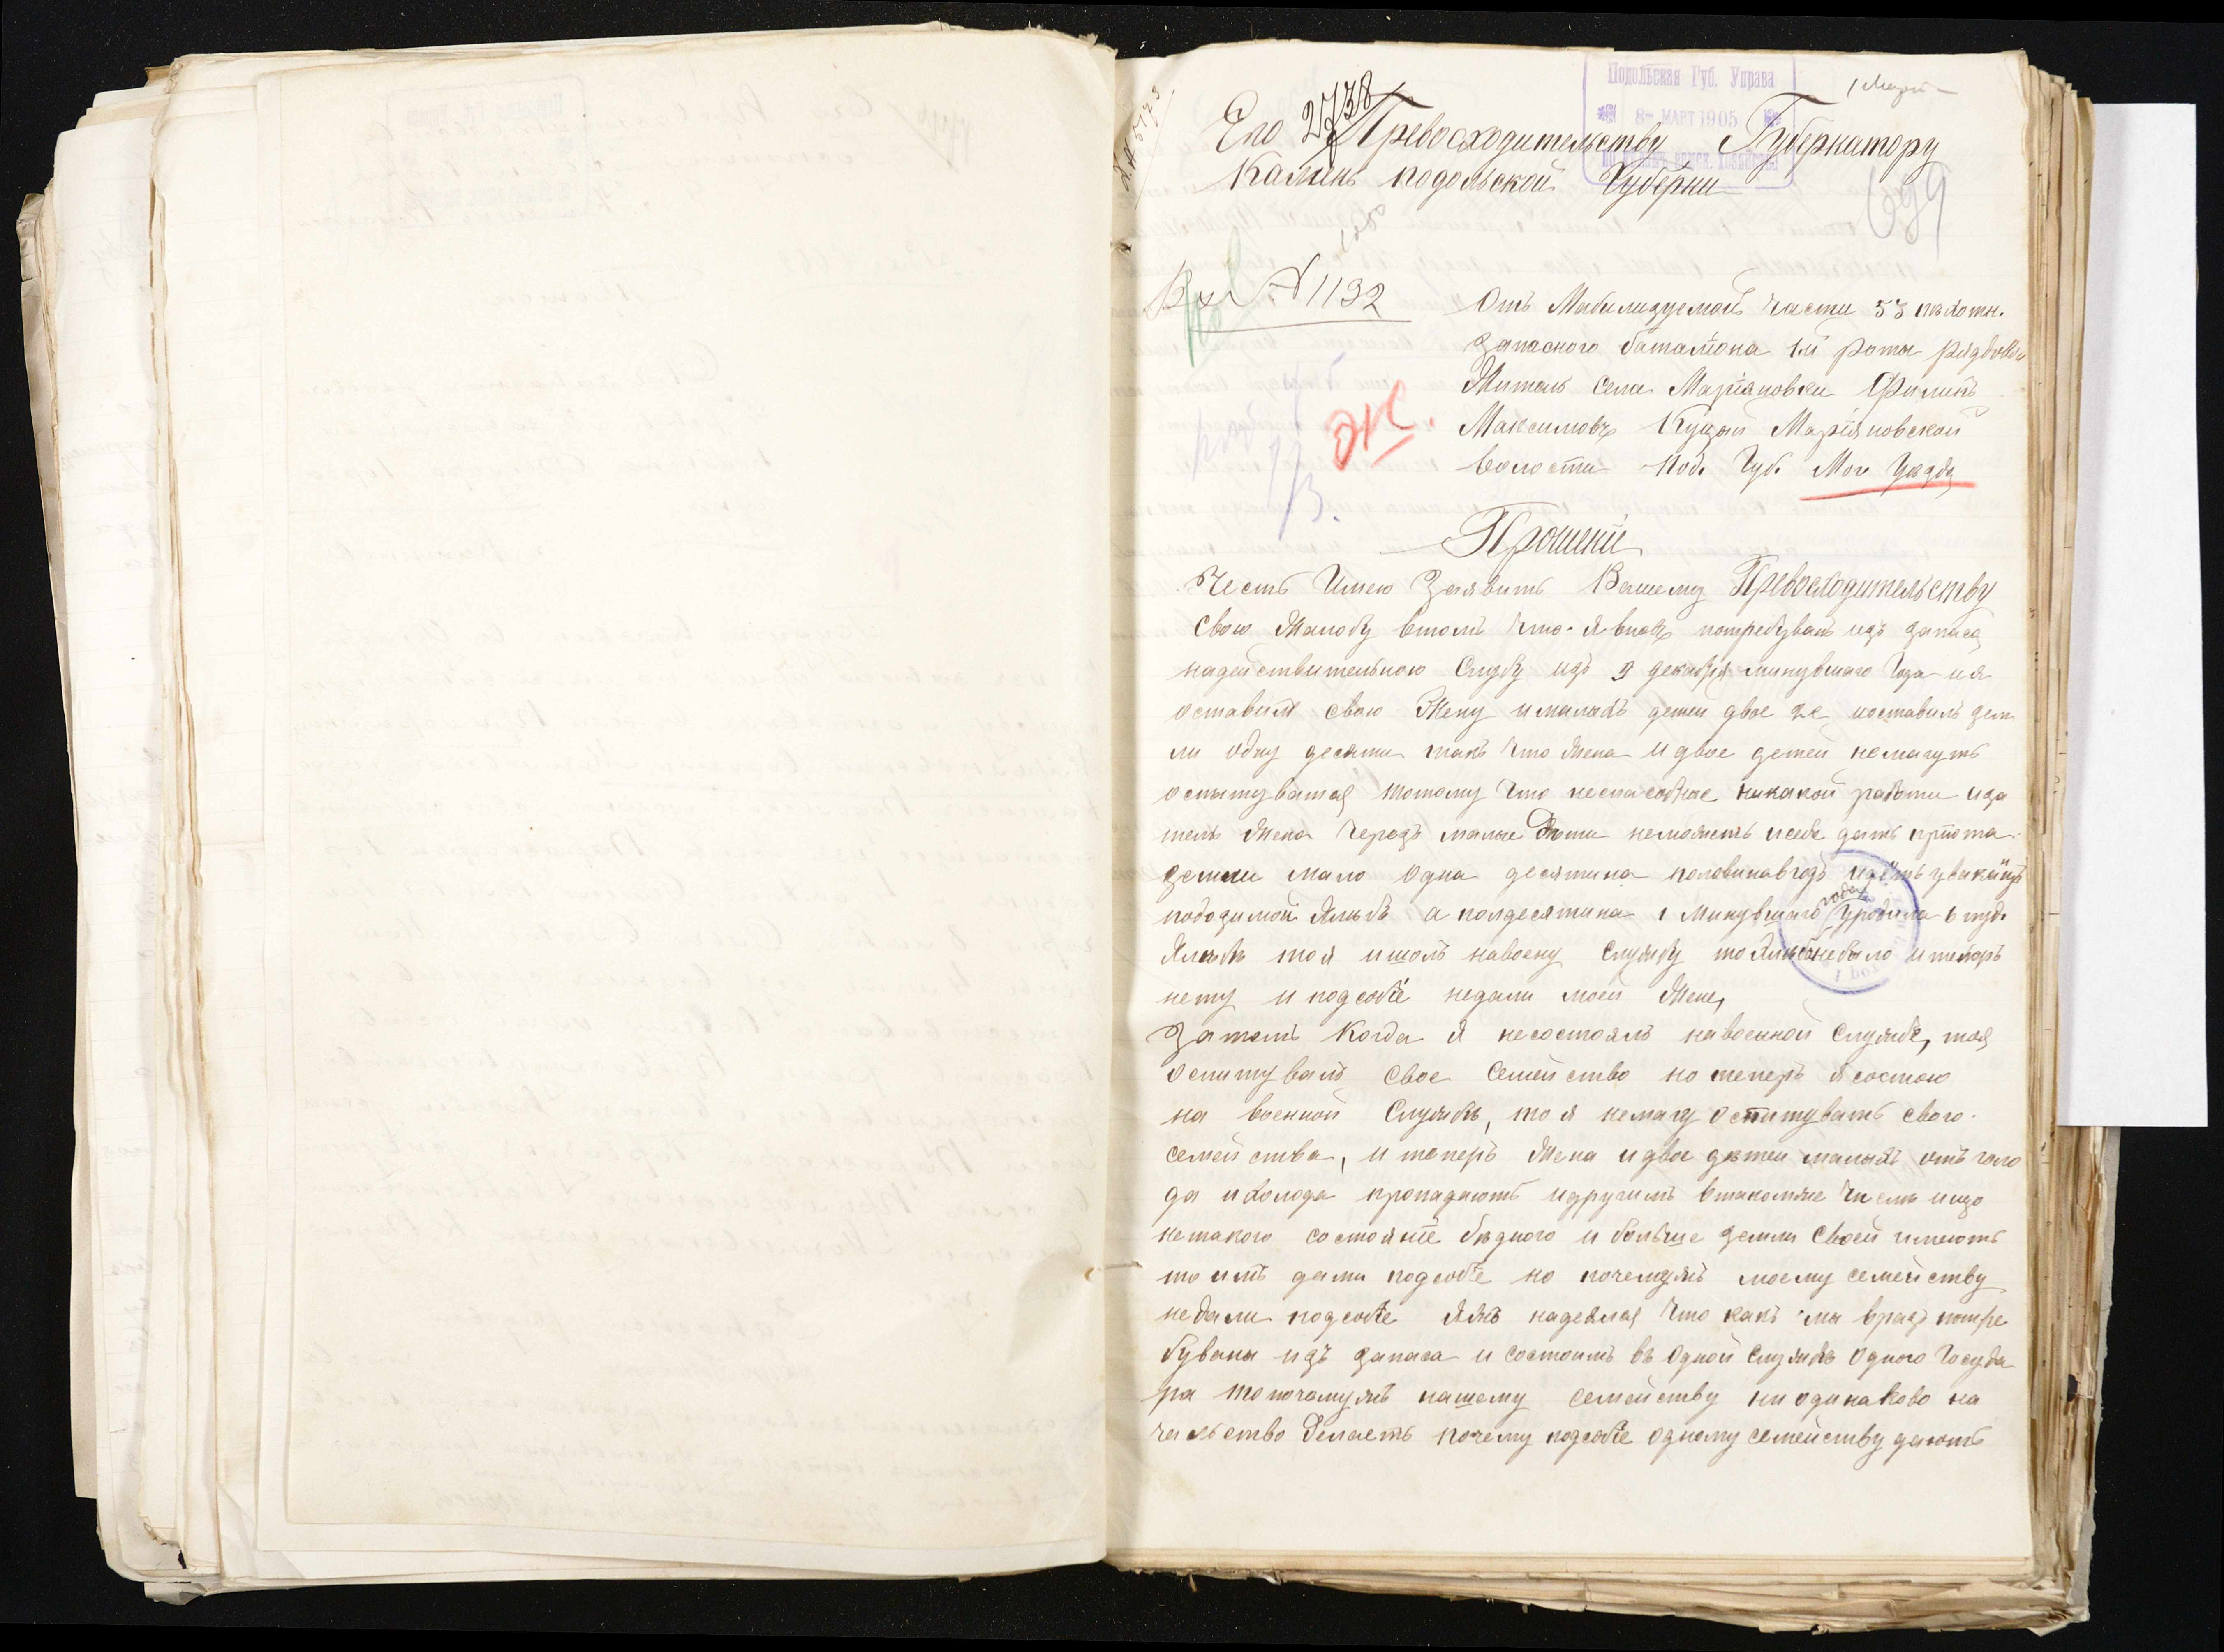 Подольская Губ. Управа
8- МАРТ 1905
2738
Его Превосходительству Губернатору
Камянъ подольской Губерни
699
Вх № 1132
Отъ Мабилизуемой части 53 пѣхотн.
Запасного баталіона 1й роты рядовой
Житель села Маріановки Филипъ
Максимовъ Куцый Маріяновской
волости Под. Губ. Мог Уѣзда
Эк.
Прошеніе
Честь Имею Заявить Вашему Превосходительству
свою Жалобу втомъ что я вновь потребуванъ изъ запаса
надействительною Слубу изъ 9 декабря минувшаго Года и я
оставилъ свою Жену ималыхъ детей двое иоставилъ зем
ли одну десяти такъ что Жена и двое детей немагутъ
оспытуватся потому что неспасобные никакой работи иза
темъ Жена черазъ малые Дѣти неможетъ исебе дать пріюта
земли мало одна десятина половинавгодъ идётъ
пododимой Хлѣбъ а полдесятина 1 Минувшаго года Уродила 6 пуд.
Хлѣбъ то я ишолъ навоену Службу то Хлѣбанебыло и теперъ
нету и подсобіе недали моей Жене,
Затемъ Когда я несостоялъ навоенной Службе, то я
оспитувалъ свое Семейство но теперъ я состою
на военной Службѣ, то я немагу оспитувать свого
семейства, и теперъ Жена идвое дѣтей малыхъ отъ голо
да иХолода пропадаютъ идругимъ втакомже числѣ ищо
нетакого состояніе бѣдного и больше земли Своей имеютъ
то имъ дали подсобіе но почемужъ моему семейству
недали подсобіе Яжъ надеялся что какъ мы вразъ потре
буваны изъ запаса и состоимъ въ Одной Службѣ Одного Госуда
ра то почамужъ нашему семейству ни одинаково на
чальство Делаетъ почему подсобіе одному семейству даютъ